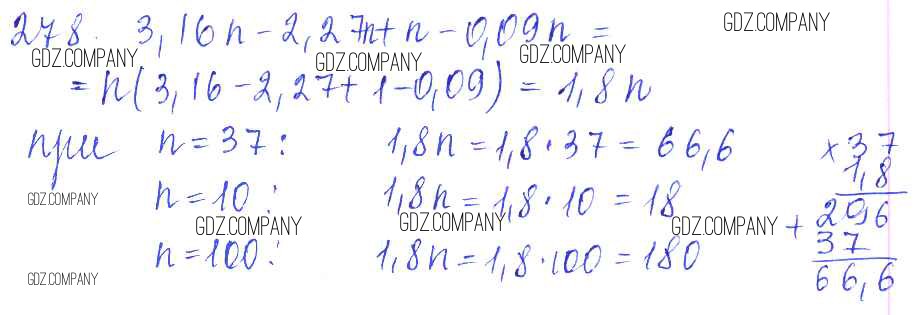 278. 3,16n - 2,27n + n - 0,09n =
GDZ.COMPANY
GDZ.COMPANY GDZ.COMPANY GDZ.COMPANY
= n(3,16 - 2,27 + 1 - 0,09) = 1,8n
при n = 37: 1,8n = 1,8 · 37 = 66,6
GDZ.COMPANY
n = 10: 1,8n = 1,8 · 10 = 18
GDZ.COMPANY GDZ.COMPANY GDZ.COMPANY
n = 100: 1,8n = 1,8 · 100 = 180
GDZ.COMPANY
× 37
1,8
+ 29,6
37
66,6